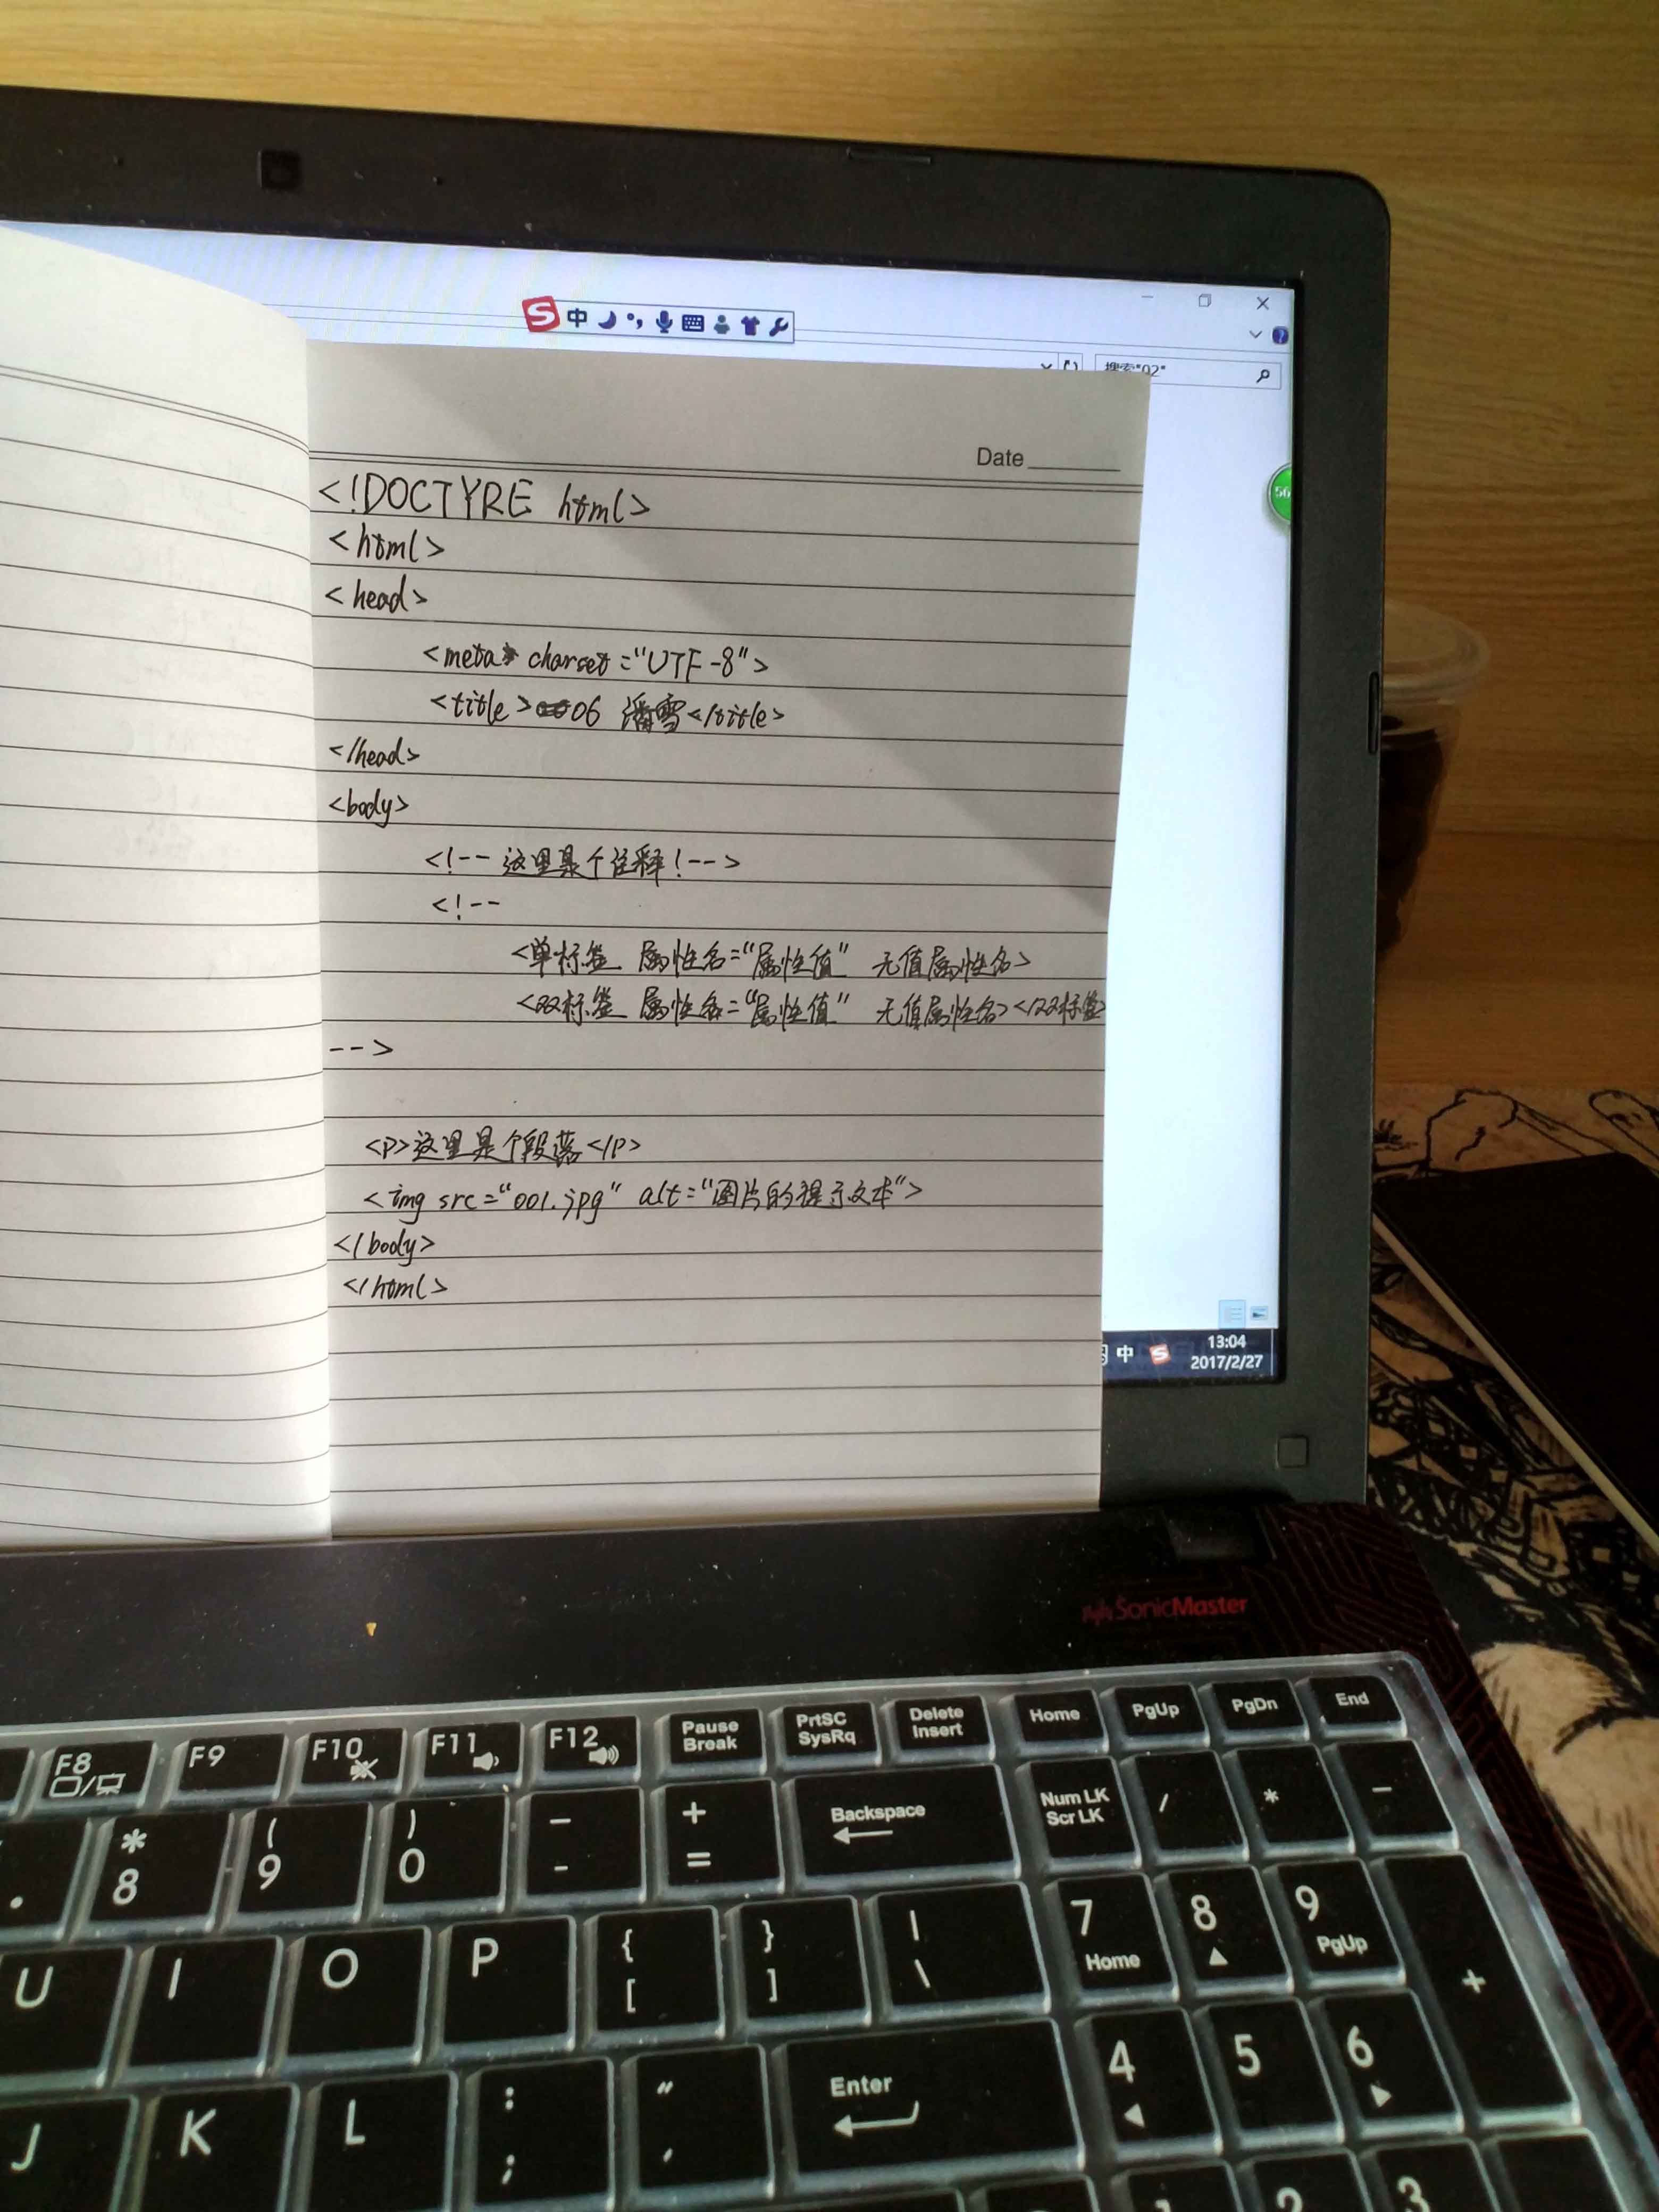 中
搜索"02"
56
Date
<!DOCTYRE html>
<html>
<head>
<meta charset="UTF-8">
<title>06 潘雪</title>
</head>
<body>
<!-- 这里是个注释!-->
<!--
<单标签 属性名="属性值" 无值属性名>
<双标签 属性名="属性值" 无值属性名></双标签>
-->
<p>这里是个段落</p>
<img src="001.jpg" alt="图片的提示文本">
</body>
</html>
中
13:04
2017/2/27
SonicMaster
F8 F9 F10 F11 F12 Pause Break PrtSC SysRq Delete Insert Home PgUp PgDn End
* 8 ( 9 ) 0 - - + = Backspace Num LK Scr LK / * -
U I O P { [ } ] | \ 7 Home 8 9 PgUp +
J K L : ; " ' Enter 4 5 6
1 2 3